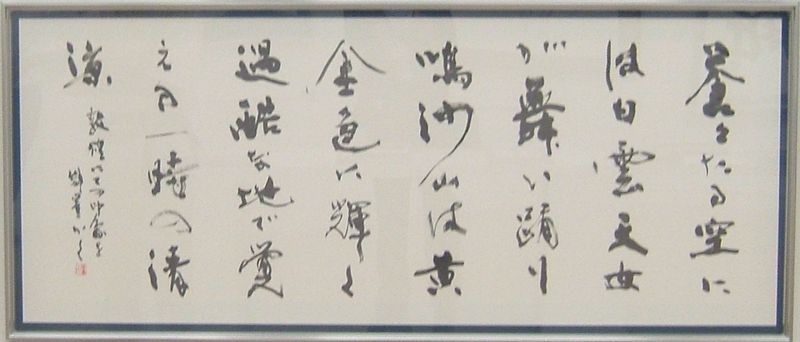 蒼々たる空に
は白雲天女
が舞い踊り
鳴沙山は黄
金色に輝く
過酷な地で覚
える一時の清
涼 敦煌